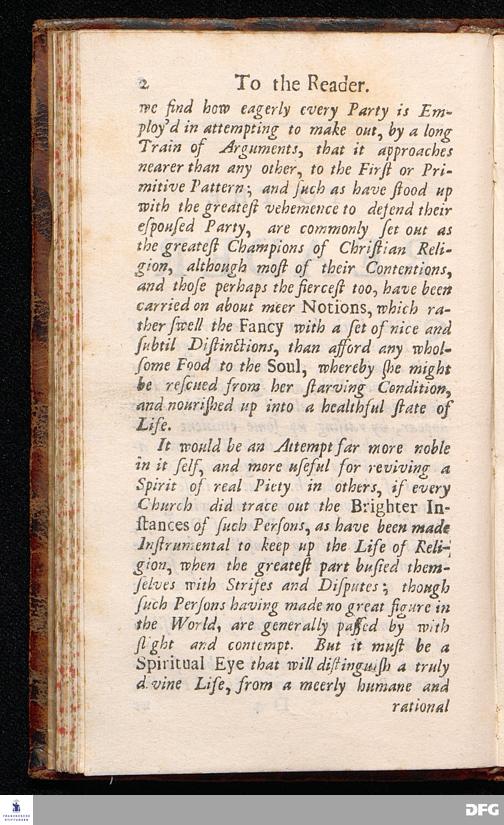 2 To the Reader.
we find how eagerly every Party is Em-
ploy'd in attempting to make out, by a long
Train of Arguments, that it approaches
nearer than any other, to the Firſt or Pri-
mitive Pattern; and ſuch as have ſtood up
with the greateſt vehemence to defend their
eſpouſed Party, are commonly ſet out as
the greateſt Champions of Chriſtian Reli-
gion, although moſt of their Contentions,
and thoſe perhaps the fierceſt too, have been
carried on about meer Notions, which ra-
ther ſwell the Fancy with a ſet of nice and
ſubtil Diſtinctions, than afford any whol-
ſome Food to the Soul, whereby ſhe might
be reſcued from her ſtarving Condition,
and nouriſhed up into a healthful ſtate of
Life.
It would be an Attempt far more noble
in it ſelf, and more uſeful for reviving a
Spirit of real Piety in others, if every
Church did trace out the Brighter In-
ſtances of ſuch Perſons, as have been made
Inſtrumental to keep up the Life of Reli-
gion, when the greateſt part buſied them-
ſelves with Strifes and Diſputes; though
ſuch Perſons having made no great figure in
the World, are generally paſſed by with
ſlight and contempt. But it muſt be a
Spiritual Eye that will diſtinguiſh a truly
divine Life, from a meerly humane and
rational
FRANCKESCHE
STIFTUNGEN
DFG